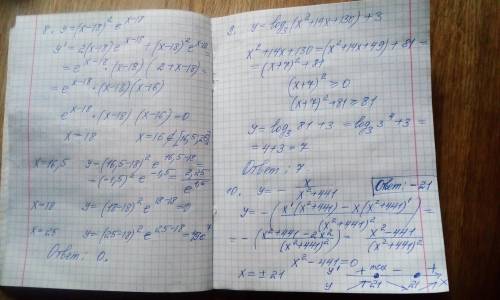 8. y=(x-18)² e^(x-18)
y' = 2(x-18)e^(x-18) + (x-18)² e^(x-18) =
= e^(x-18) · (x-18)(2+x-18) =
= e^(x-18) · (x-18)(x-16)
e^(x-18) · (x-18)(x-16) = 0
x=18 x=16 ∉
x=16,5 y=(16,5-18)² e^(16,5-18) =
= (-1,5)² e^(-1,5) = 2,25/e^(1,5)
x=18 y=(18-18)² e^(18-18) = 0
x=25 y=(25-18)² e^(25-18) = 49e⁷
Ответ: 0.
9. y=log₃(x²+14x+130)+3
x²+14x+130=(x²+14x+49)+81=
=(x+7)²+81
(x+7)² ≥ 0
(x+7)²+81 ≥ 81
y=log₃ 81+3 = log₃ 3⁴+3=
=4+3=7
Ответ: 7.
10. y= - x/(x²+441) Ответ: -21
y' = -(x'(x²+441) - x(x²+441)')/(x²+441)² =
= -(x²+441-2x²)/(x²+441)² = (x²-441)/(x²+441)²
x²-441=0
x=±21
y' + max - +
y -21 21 x